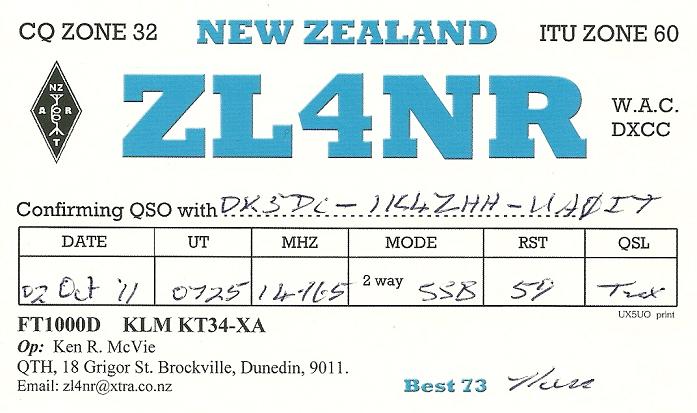 CQ ZONE 32 NEW ZEALAND ITU ZONE 60
NZ
A R
T
ZL4NR
W.A.C.
DXCC
Confirming QSO with DK5DC - IK4ZHH - UA0IT
DATE UT MHZ MODE RST QSL
02 Oct '11 0725 14.165 2 way SSB 59 Tnx
UX5UO print
FT1000D KLM KT34-XA
Op: Ken R. McVie
QTH, 18 Grigor St. Brockville, Dunedin, 9011.
Email: zl4nr@xtra.co.nz
Best 73